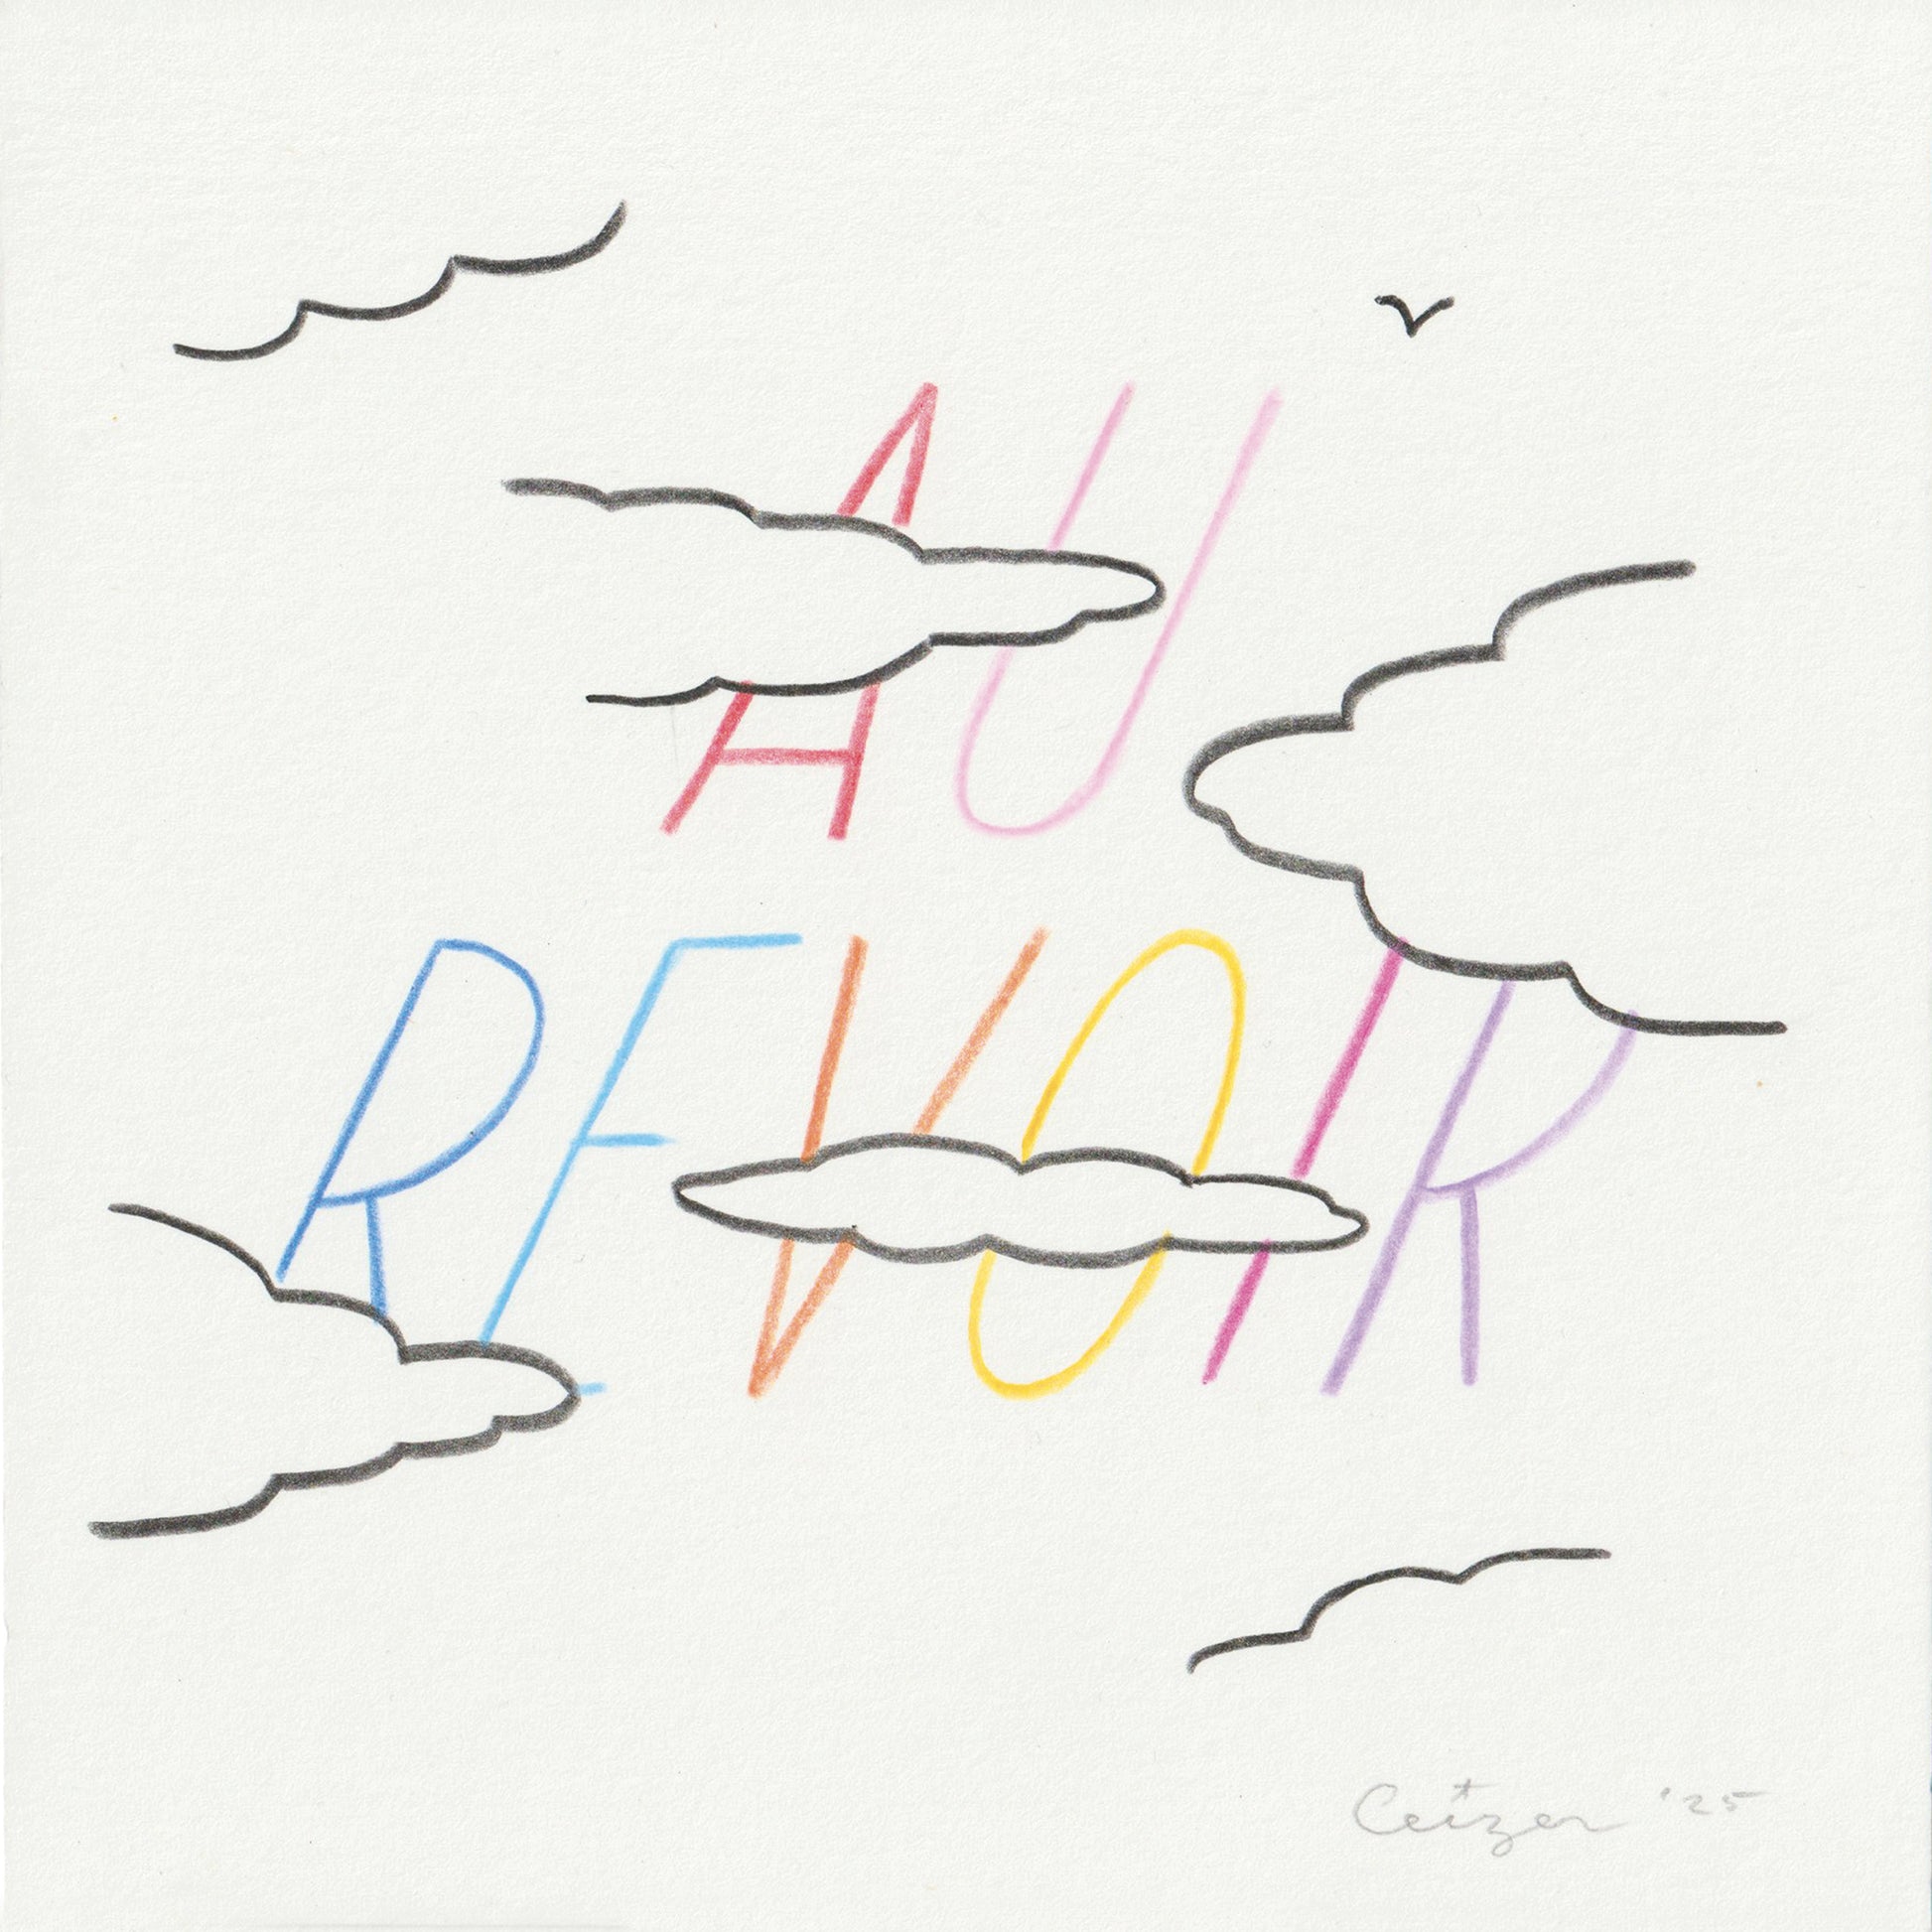 AU
REVOIR
Ceizer '25